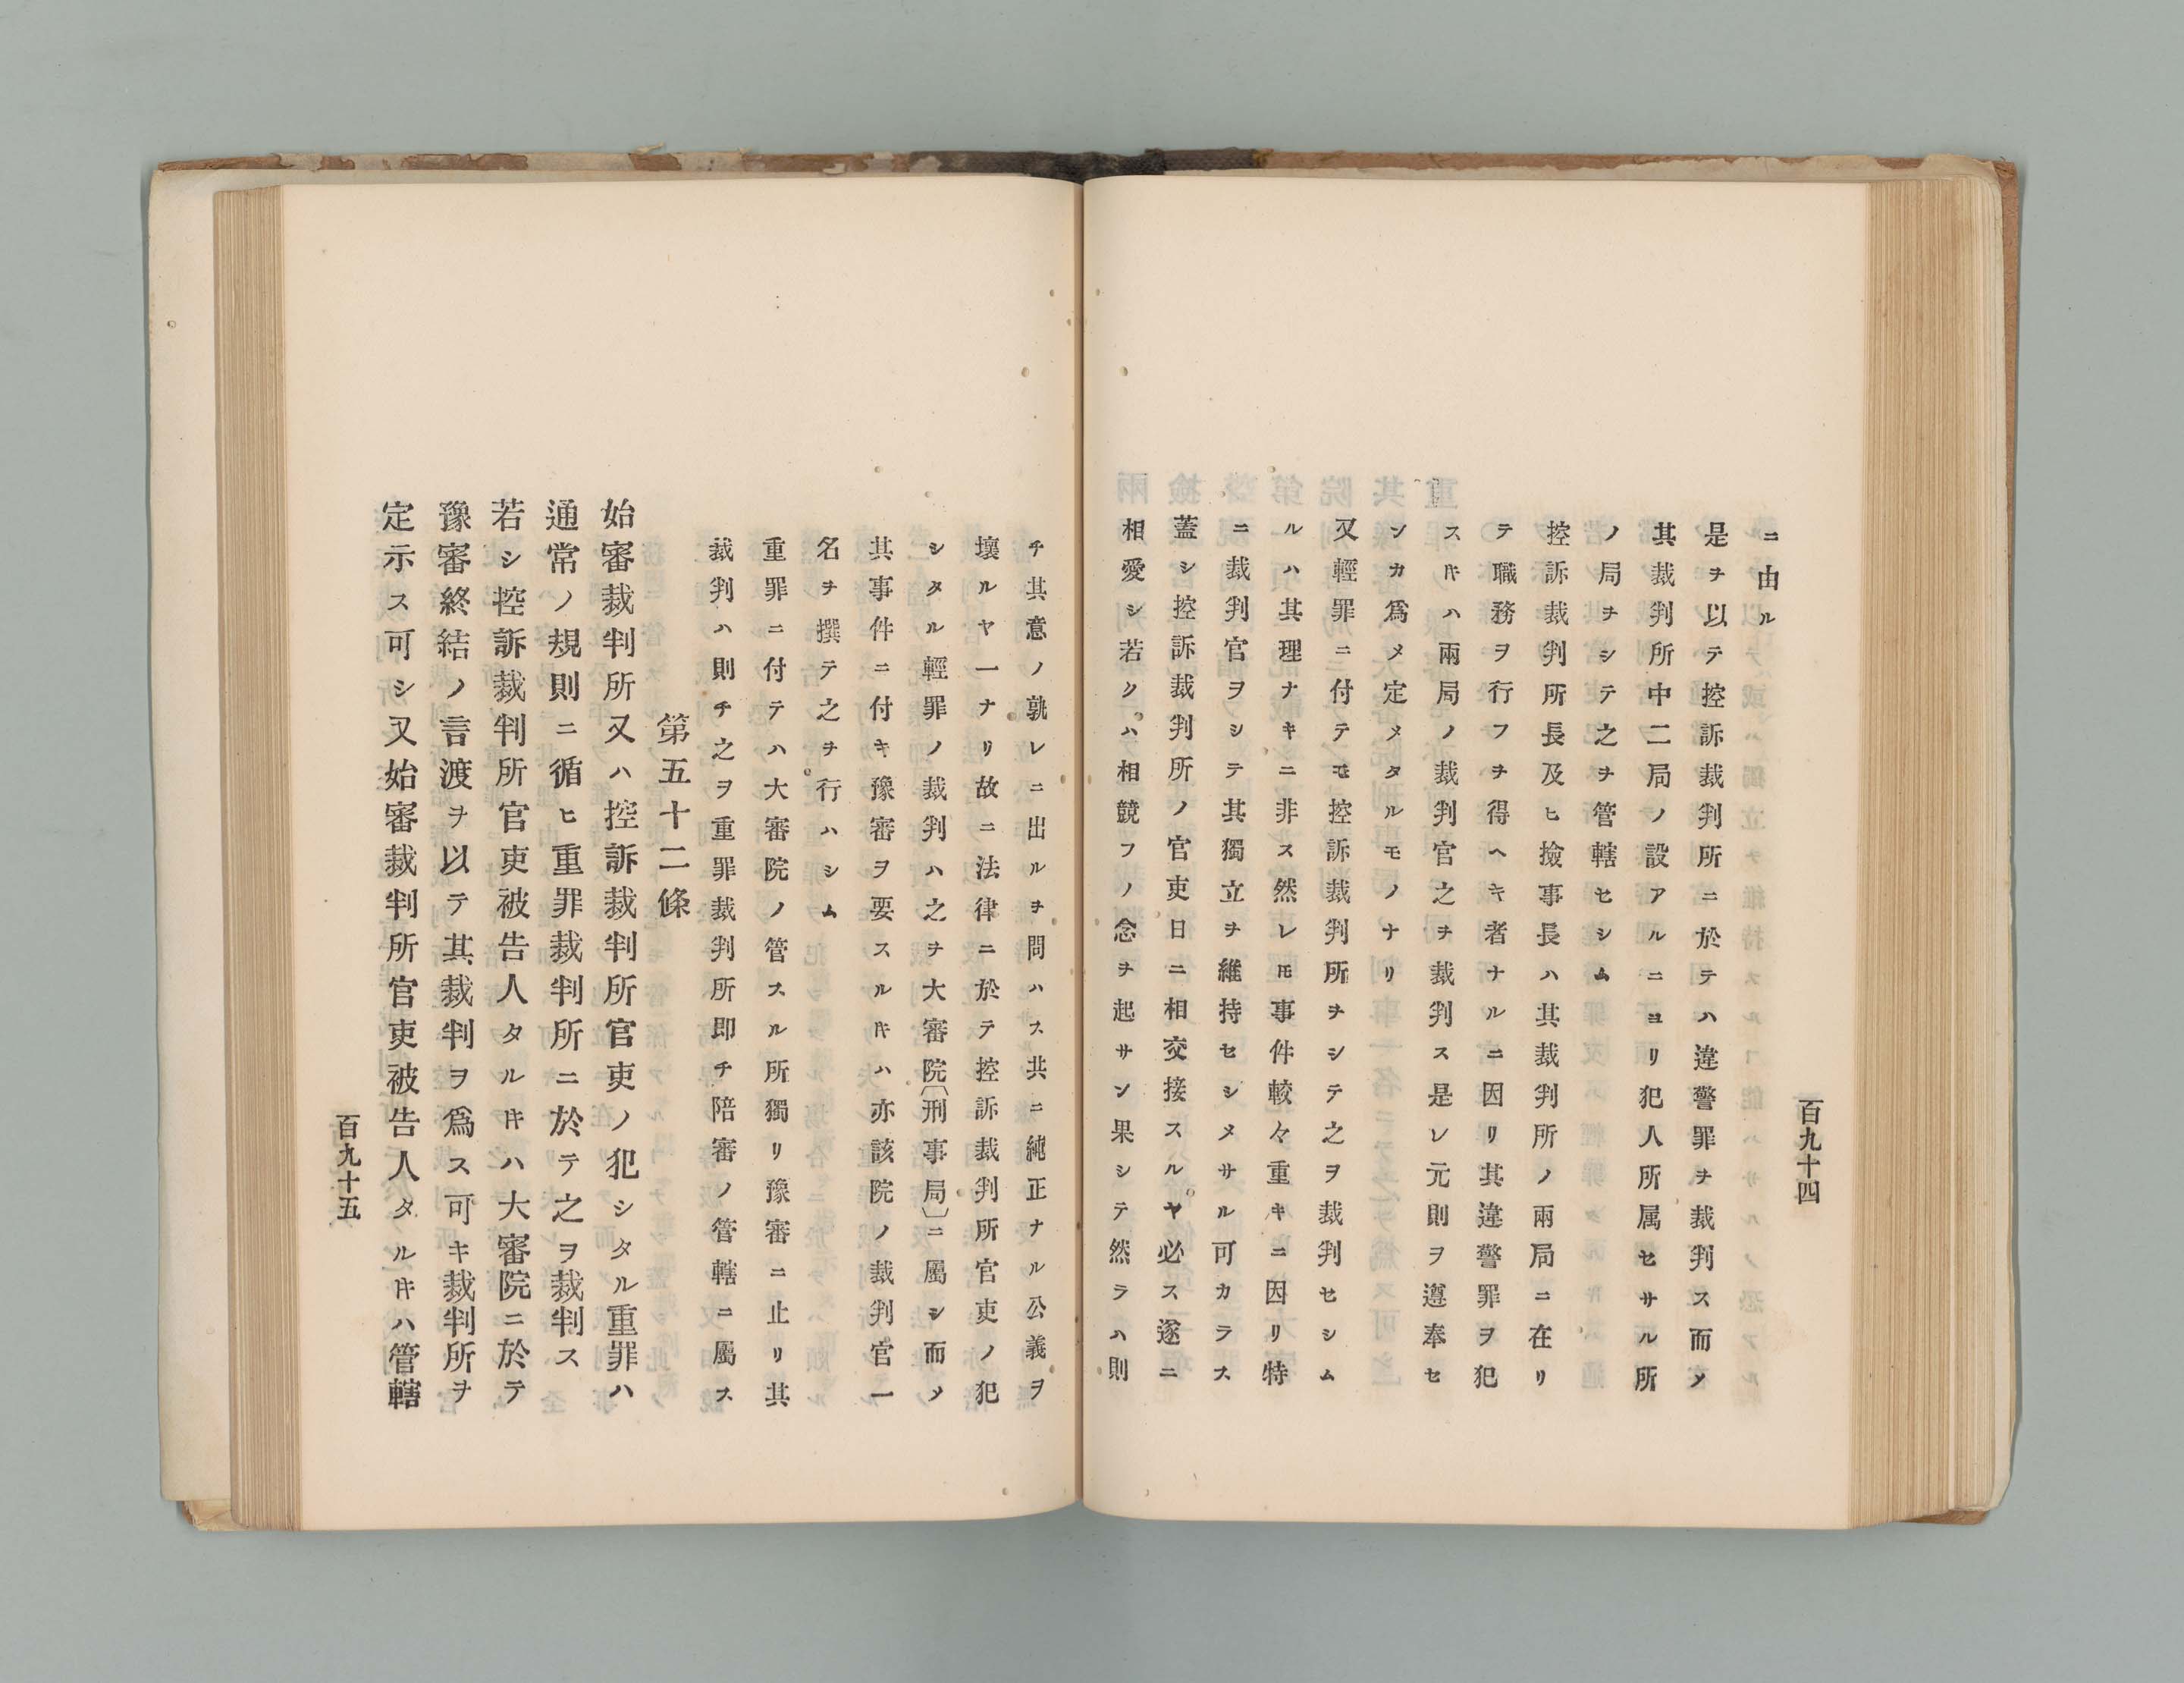 百九十四
ニ由ル
是ヲ以テ控訴裁判所ニ於テハ違警罪ヲ裁判ス而メ
其裁判所中二局ノ設アルニヨリ犯人所属セサル所
ノ局ヲシテ之ヲ管轄セシム
控訴裁判所長及ヒ撿事長ハ其裁判所ノ兩局ニ在リ
テ職務ヲ行フヲ得ヘキ者ナルニ因リ其違警罪ヲ犯
スㇳキハ兩局ノ裁判官之ヲ裁判ス是レ元則ヲ遵奉セ
ンカ爲メ定メタルモノナリ
又輕罪ニ付テモ控訴裁判所ヲシテ之ヲ裁判セシム
ルハ其理ナキニ非ス然レㇳモ事件較々重キニ因リ特
ニ裁判官ヲシテ其獨立ヲ維持セシメサル可カラス
蓋シ控訴裁判所ノ官吏日ニ相交接スルヤ必ス遂ニ
相愛シ若クハ相競フノ念ヲ起サン果シテ然ラハ則
チ其意ノ孰レニ出ルヲ問ハス共ニ純正ナル公義ヲ
壞ルヤ一ナリ故ニ法律ニ於テ控訴裁判所官吏ノ犯
シタル輕罪ノ裁判ハ之ヲ大審院〔刑事局〕ニ屬シ而メ
其事件ニ付キ豫審ヲ要スルㇳキハ亦該院ノ裁判官一
名ヲ撰テ之ヲ行ハシム
重罪ニ付テハ大審院ノ管スル所獨リ豫審ニ止リ其
裁判ハ則チ之ヲ重罪裁判所即チ陪審ノ管轄ニ屬ス
第五十二條
始審裁判所又ハ控訴裁判所官吏ノ犯シタル重罪ハ
通常ノ規則ニ循ヒ重罪裁判所ニ於テ之ヲ裁判ス
若シ控訴裁判所官吏被告人タルㇳキハ大審院ニ於テ
豫審終結ノ言渡ヲ以テ其裁判ヲ爲ス可キ裁判所ヲ
定示ス可シ又始審裁判所官吏被告人タルㇳキハ管轄
百九十五